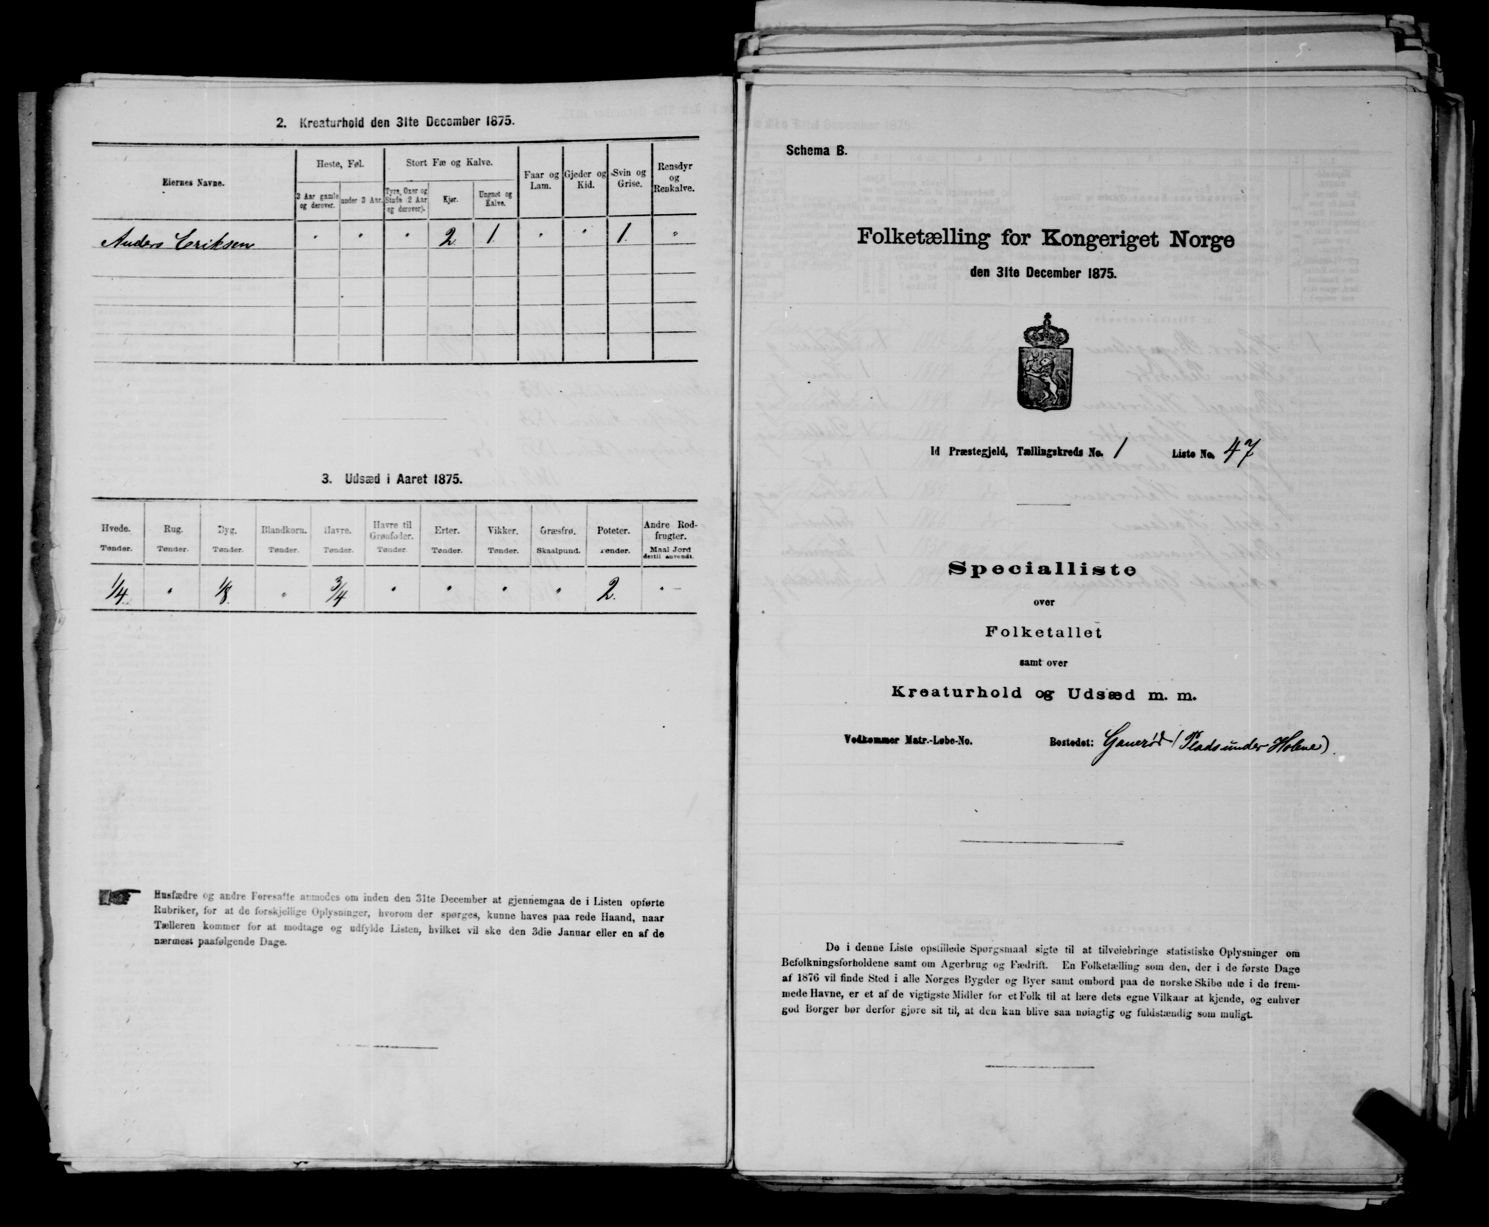 2. Kreaturhold den 31te December 1875.
Eiernes Navne.
Heste, Føl.
Stort Fæ og Kalve.
Faar og Lam.
Gjeder og Kid.
Svin og Grise.
Rensdyr og Renkalve.
3 Aar gamle og derover.
under 3 Aar.
Tyre, Oxer og Stude (2 Aar og derover).
Kjør.
Ungnøt og Kalve.
Anders Eriksen " " " 2 1 " " 1 "
3. Udsæd i Aaret 1875.
Hvede. Rug. Byg. Blandkorn. Havre. Havre til Grønfoder. Erter. Vikker. Græsfrø. Poteter. Andre Rodfrugter.
Tønder. Tønder. Tønder. Tønder. Tønder. Tønder. Tønder. Tønder. Skaalpund. Tønder. Maal Jord dertil anvendt.
1/4 " 1/8 " 3/4 " " " " 2 "
Husfædre og andre Foresatte anmodes om inden den 31te December at gjennemgaa de i Listen opførte
Rubriker, for at de forskjellige Oplysninger, hvorom der spørges, kunne haves paa rede Haand, naar
Tælleren kommer for at modtage og udfylde Listen, hvilket vil ske den 3die Januar eller en af de
nærmest paafølgende Dage.
Schema B.
Folketælling for Kongeriget Norge
den 31te December 1875.
Id Præstegjeld, Tællingskreds No. 1 Liste No. 47
Specialliste
over
Folketallet
samt over
Kreaturhold og Udsæd m. m.
Vedkommer Matr.-Løbe-No. Bostedet: Ganerød (Plads under Holene).
De i denne Liste opstillede Spørgsmaal sigte til at tilveiebringe statistiske Oplysninger om
Befolkningsforholdene samt om Agerbrug og Fædrift. En Folketælling som den, der i de første Dage
af 1876 vil finde Sted i alle Norges Bygder og Byer samt ombord paa de norske Skibe ude i de frem-
mede Havne, er et af de vigtigste Midler for et Folk til at lære dets egne Vilkaar at kjende, og enhver
god Borger bør derfor gjøre sit til, at den kan blive saa nøiagtig og fuldstændig som muligt.